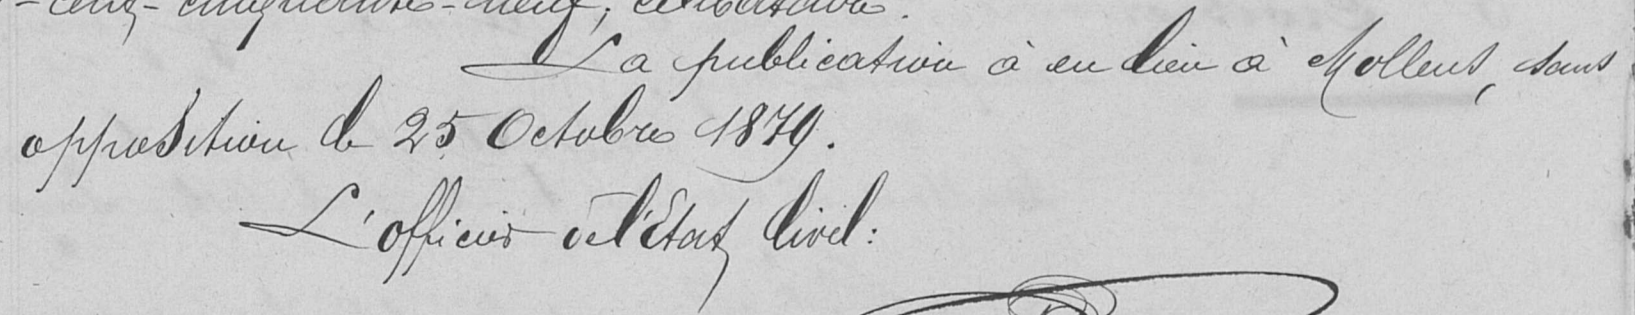 -cent-cinquante-neuf, célibataire.
La publication à eu lieu à Mollens, sans
opposition le 25 Octobre 1879.
L'officier de l'Etat Civil: